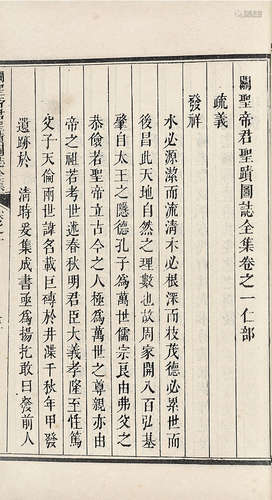 關聖帝君聖蹟圖誌全集卷之一仁部
疏義
發祥
水必源潔而流清木必根深而枝茂德必累世而
後昌此天地自然之理數也故周家開八百弘基
肇自太王之隱德孔子為萬世儒宗良由弗父之
恭儉若聖帝立古今之人極為萬世之尊親亦由
帝之祖若考世迷春秋明君臣大義孝隆至性篤
父子天倫兩世諱名載巨磚於井渫千秋年甲發
遺蹟於 清時爰集成書亟為揚扢敢曰發前人